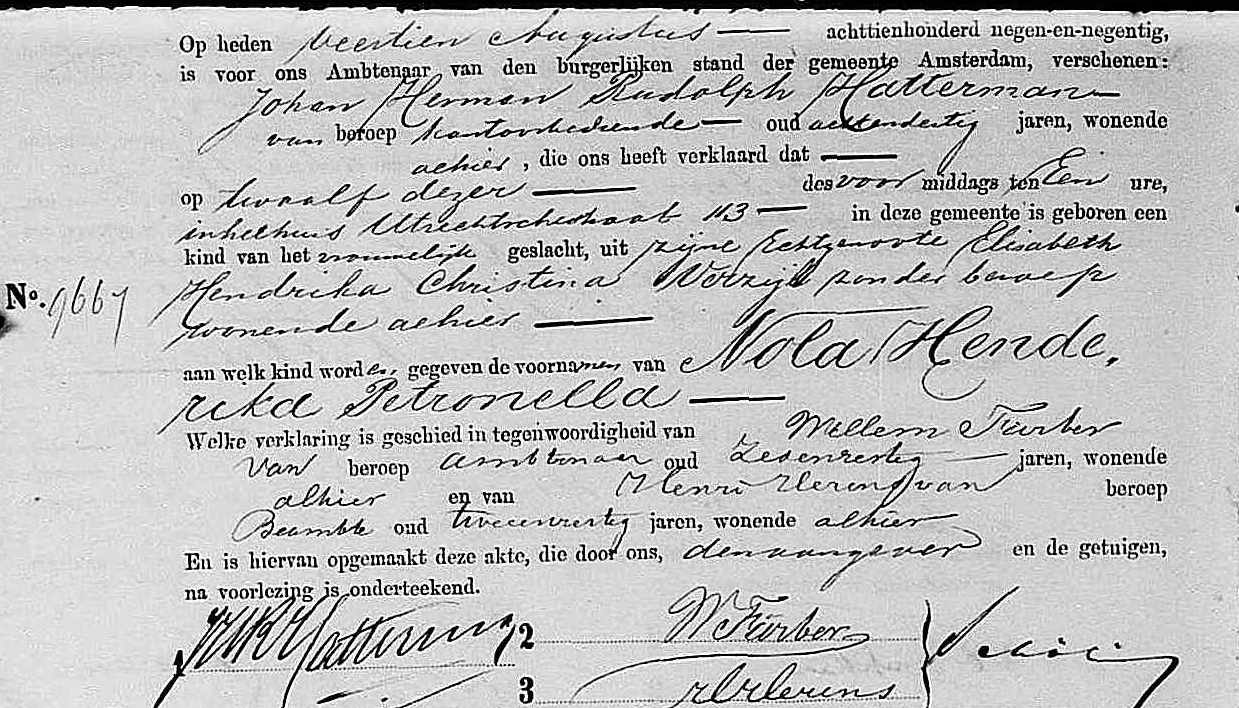 Op heden Veertien Augustus — achttienhonderd negen-en-negentig,
is voor ons Ambtenaar van den burgerlijken stand der gemeente Amsterdam, verschenen:
Johan Herman Rudolph Hatterman
van beroep kantoorbediende — oud achtendertig jaren, wonende
alhier, die ons heeft verklaard dat —
op twaalf dezer — des voor middags ten Een ure,
in het huis Utrechtschestraat 113 — in deze gemeente is geboren een
kind van het vrouwelijk geslacht, uit zijne Echtgenoote Elisabeth
No. 9667 Hendrika Christina Verzijl zonder beroep
wonende alhier —
aan welk kind worden gegeven de voornamen van Nola Hende,
rika Petronella —
Welke verklaring is geschied in tegenwoordigheid van Willem Färber
van beroep ambtenaar oud zesenveertig — jaren, wonende
alhier en van Henri van beroep
Beambte oud tweeenveertig jaren, wonende alhier
En is hiervan opgemaakt deze akte, die door ons, den aangever en de getuigen,
na voorlezing is onderteekend.
JHR Hatterman 2 W Färber
3